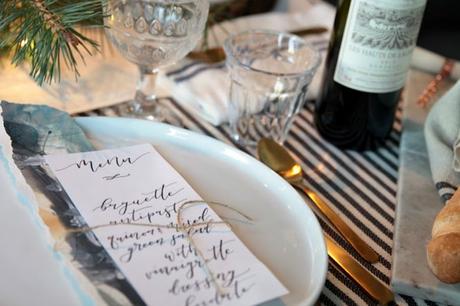 menu
baguette
antipasti
quinoa mixed
green salad
with
vinaigrette
dressing
LES HAUTS DE